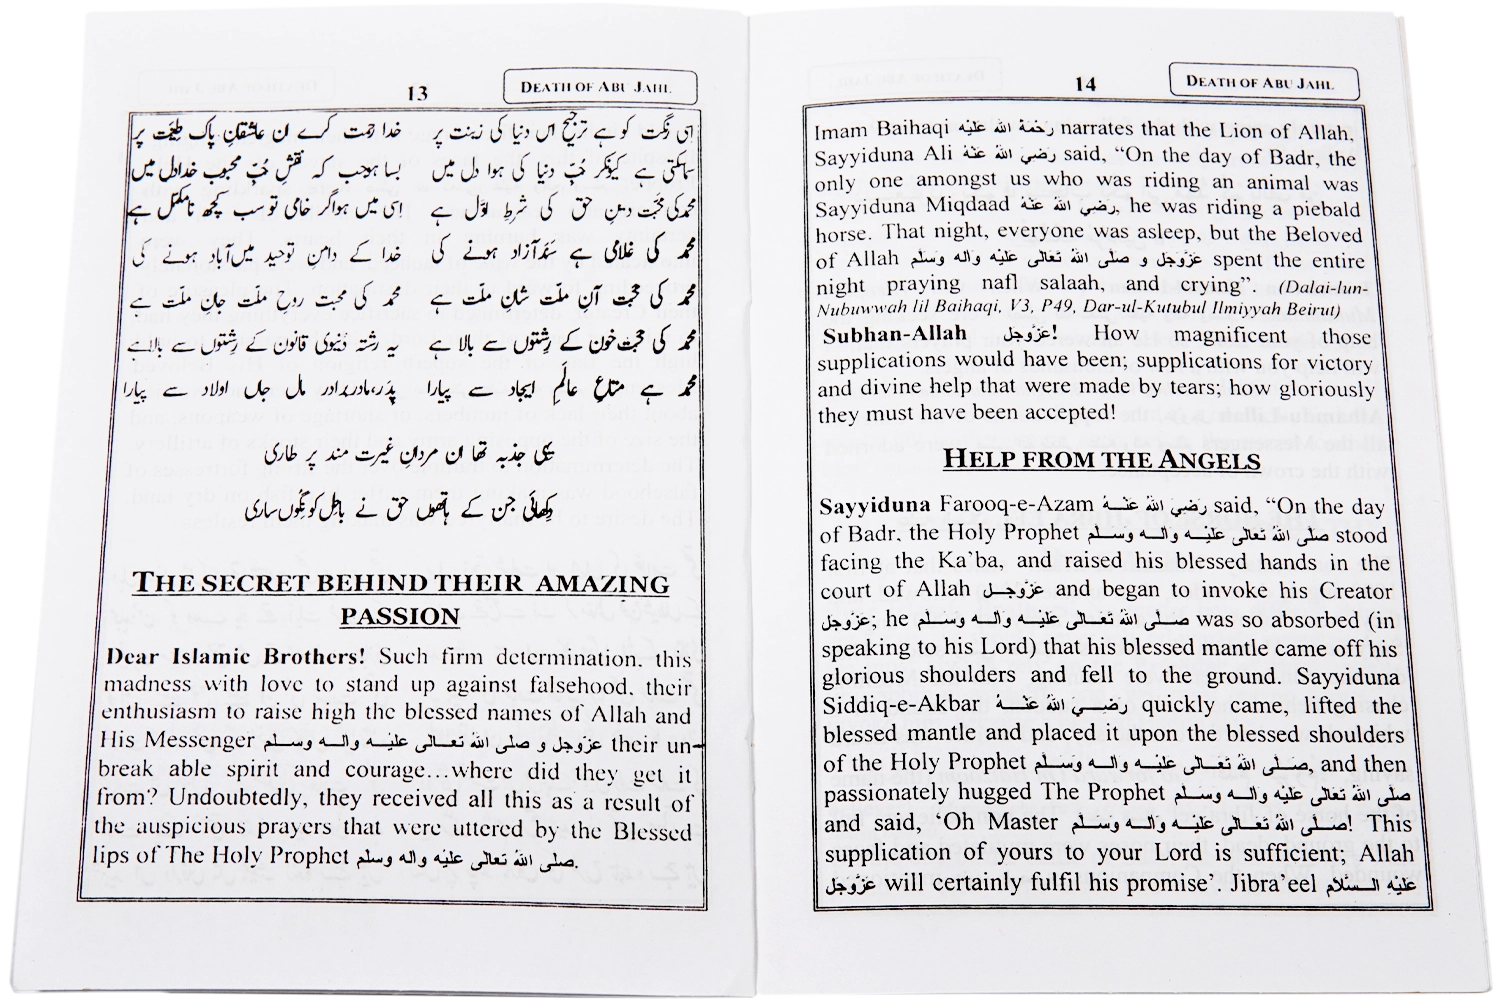 13
DEATH OF ABU JAHL
خدا رحمت کرے ان عاشقانِ پاک طِینَت پر اسی رنگت کو ہے ترجیح اس دنیا کی زینت پر
بسا ہو جب کہ نقشِ حُبِّ محبوب خدا دل میں سماسکتی ہے کیونکر حُبّ دنیا کی ہوا دل میں
محمد کی محبّت دینِ حق کی شرطِ اوّل ہے اِسی میں ہو اگر خامی تو سب کچھ نامکمَّل ہے
محمد کی غلامی ہے سَنَد آزاد ہونے کی خدا کے دامنِ توحید میں آباد ہونے کی
محمد کی محبّت آنِ ملّت شانِ ملّت ہے محمد کی محبت روحِ ملّت جانِ ملّت ہے
محمد کی محبّت خون کے رِشتوں سے بالا ہے یہ رشتہ دُنیوی قانون کے رِشتوں سے بالا ہے
محمد ہے متاعِ عالَمِ ایجاد سے پیارا پِدَر، مادر، برادر، مال، جاں اولاد سے پیارا
یہی جذبہ تھا ان مردانِ غیرت مند پر طاری
دِکھائی جن کے ہاتھوں حق نے باطِل کو نگوں ساری
THE SECRET BEHIND THEIR AMAZING
PASSION
Dear Islamic Brothers! Such firm determination, this
madness with love to stand up against falsehood, their
enthusiasm to raise high the blessed names of Allah and
His Messenger عزوجل و صلى الله تعالى عليه واله وسلم their un-
break able spirit and courage…where did they get it
from? Undoubtedly, they received all this as a result of
the auspicious prayers that were uttered by the Blessed
lips of The Holy Prophet صلى الله تعالى عليه واله وسلم.
14
DEATH OF ABU JAHL
Imam Baihaqi رَحْمَةُ الله عَلَيْه narrates that the Lion of Allah,
Sayyiduna Ali رَضِيَ اللهُ عَنْهُ said, “On the day of Badr, the
only one amongst us who was riding an animal was
Sayyiduna Miqdaad رَضِيَ اللهُ عَنْهُ, he was riding a piebald
horse. That night, everyone was asleep, but the Beloved
of Allah عَزَّوَجل و صلى الله تعالى عليه واله وسلم spent the entire
night praying nafl salaah, and crying”. (Dalai-lun-
Nubuwwah lil Baihaqi, V3, P49, Dar-ul-Kutubul Ilmiyyah Beirut)
Subhan-Allah عَزَّوجل! How magnificent those
supplications would have been; supplications for victory
and divine help that were made by tears; how gloriously
they must have been accepted!
HELP FROM THE ANGELS
Sayyiduna Farooq-e-Azam رَضِيَ اللهُ عَنْهُ said, “On the day
of Badr, the Holy Prophet صلى الله تعالى عليه واله وسلم stood
facing the Ka`ba, and raised his blessed hands in the
court of Allah عَزَّوجل and began to invoke his Creator
عَزَّوجل; he صلى الله تعالى عليه واله وسلم was so absorbed (in
speaking to his Lord) that his blessed mantle came off his
glorious shoulders and fell to the ground. Sayyiduna
Siddiq-e-Akbar رَضِيَ اللهُ عَنْهُ quickly came, lifted the
blessed mantle and placed it upon the blessed shoulders
of the Holy Prophet صلى الله تعالى عليه واله وسلم, and then
passionately hugged The Prophet صلى الله تعالى عليه واله وسلم
and said, ‘Oh Master صلى الله تعالى عليه واله وسلم! This
supplication of yours to your Lord is sufficient; Allah
عَزَّوجل will certainly fulfil his promise’. Jibra`eel عَلَيْهِ السَّلَام